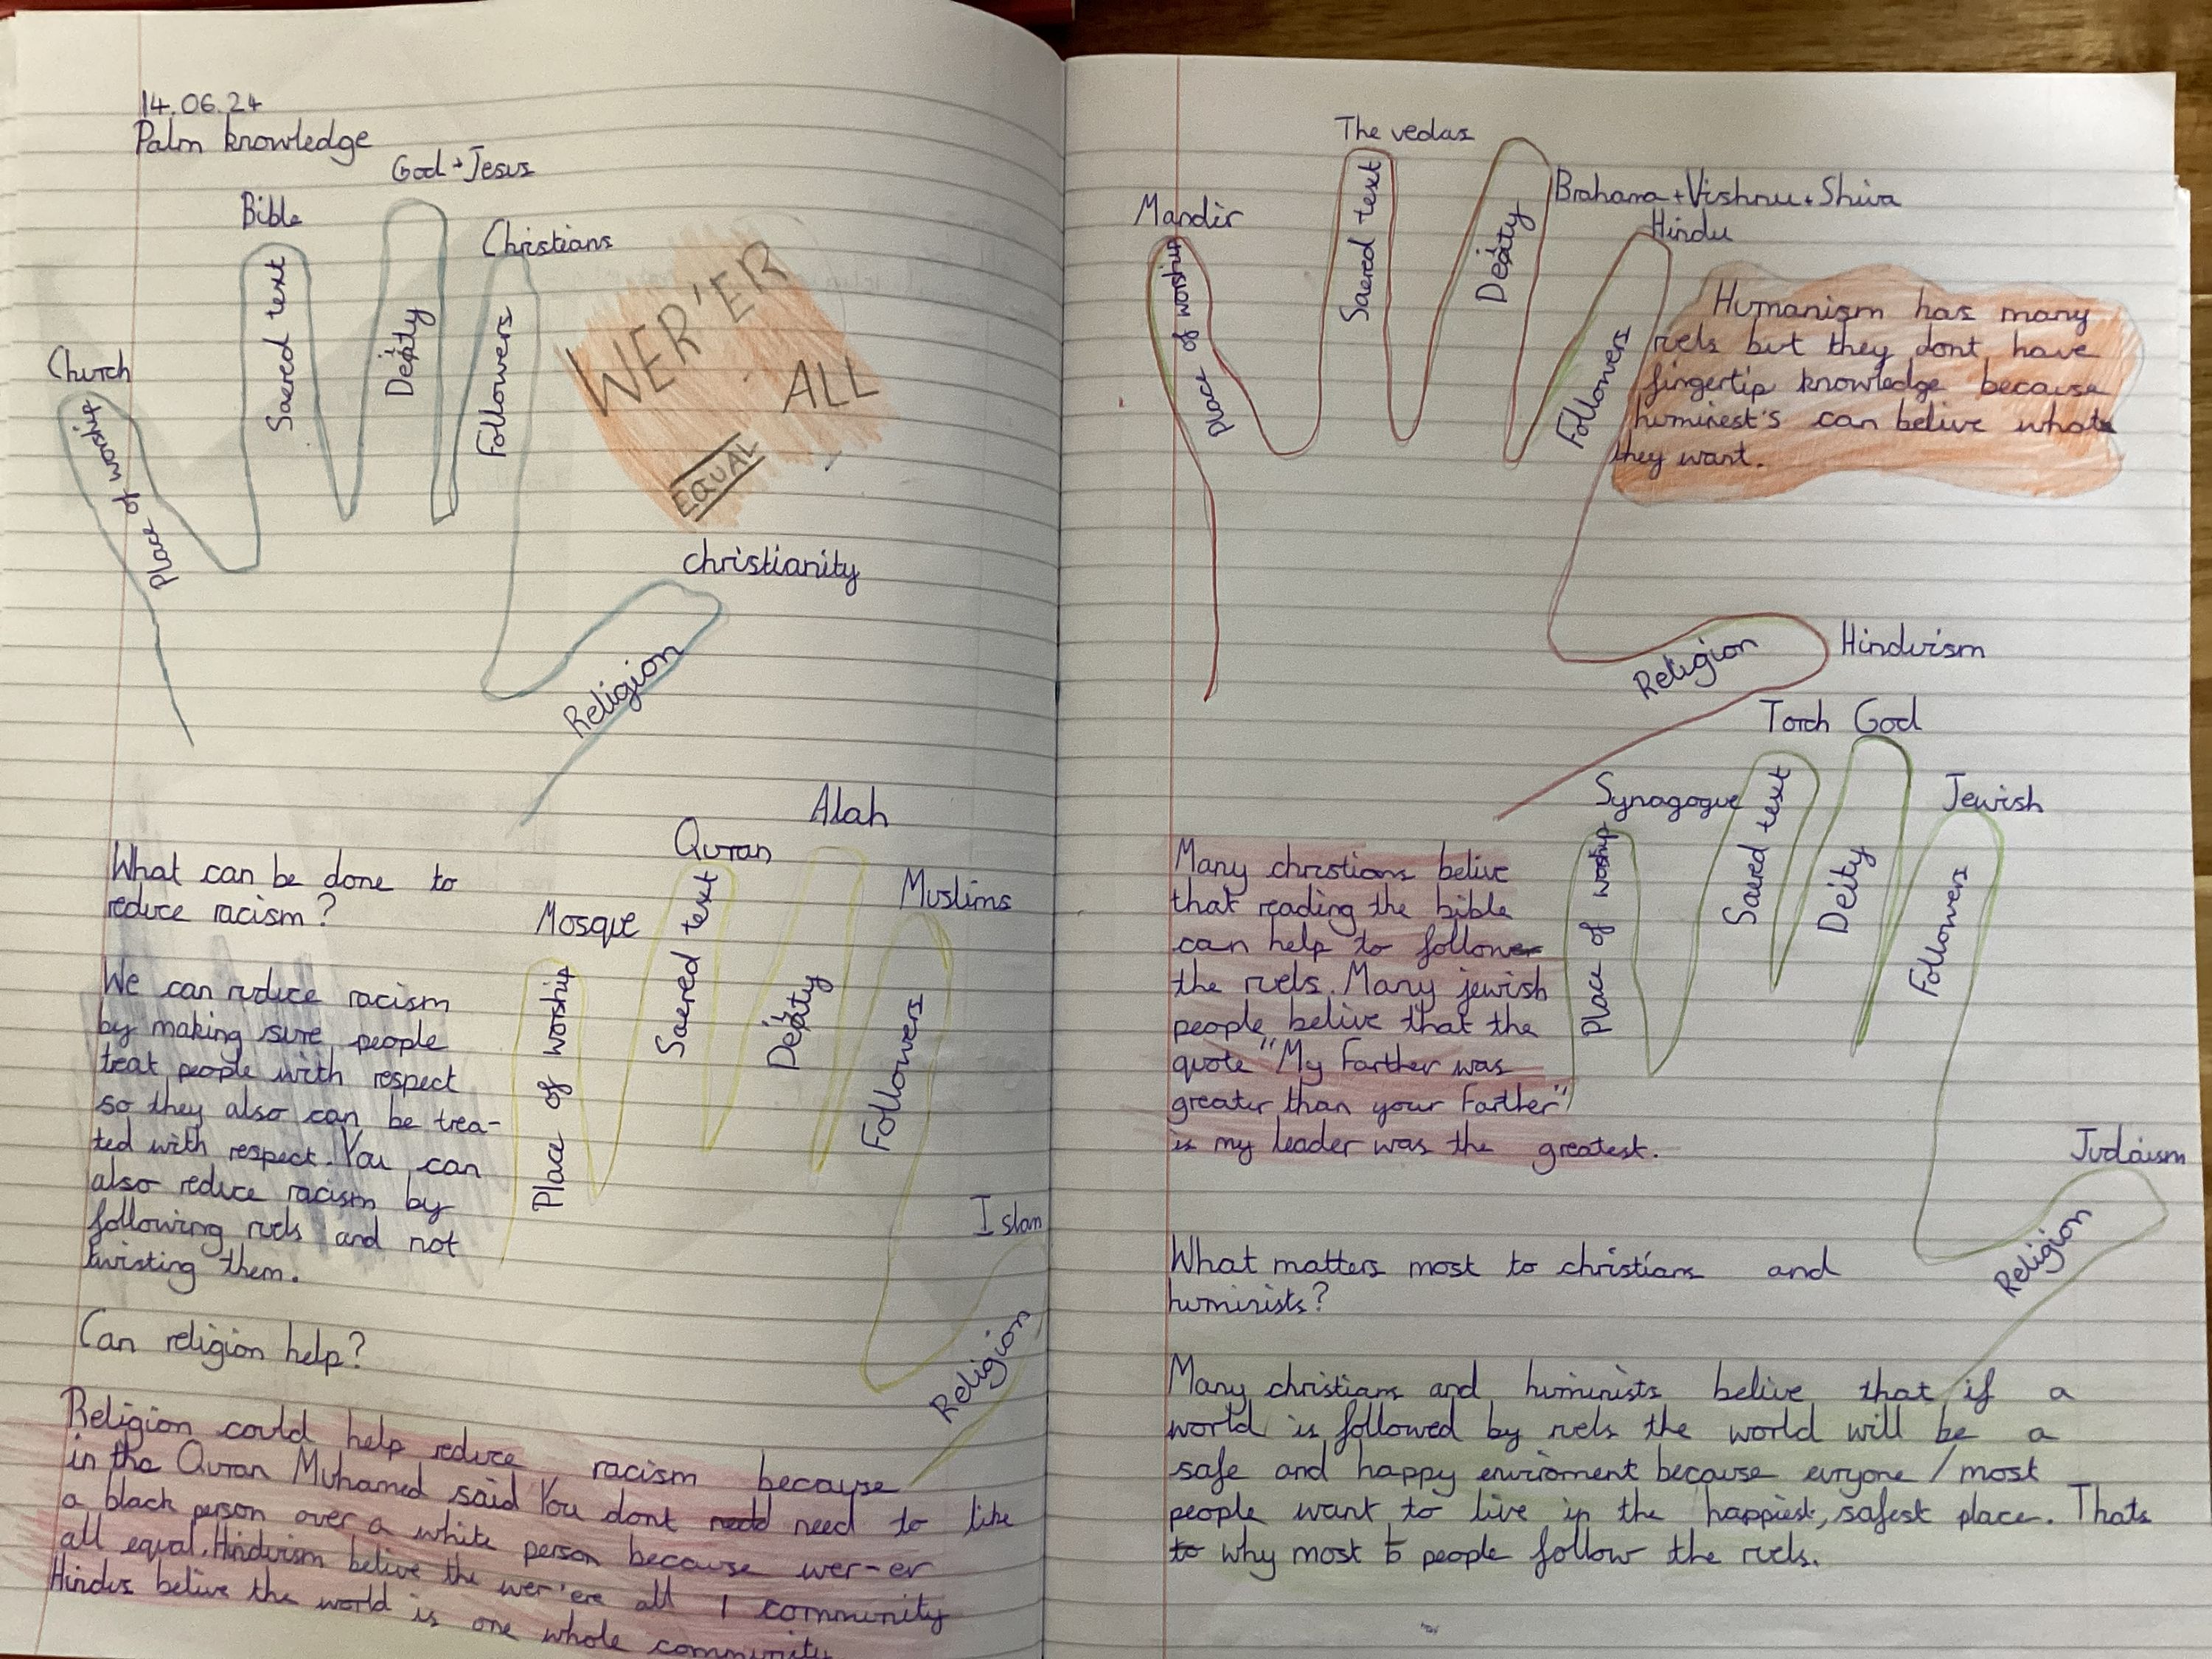 14.06.24
Palm knowledge
God + Jesus
Bible
Christians
Church
Place of worship
Sacred text
Deity
Followers
WER'ER
ALL
EQUAL
christianity
Religion
What can be done to
reduce racism?
We can reduce racism
by making sure people
treat people with respect
so they also can be trea-
ted with respect. You can
also reduce racism by
following ruels and not
twisting them.
Alah
Quran
Muslims
Mosque
Place of worship
Sacred text
Deity
Followers
Islam
Religion
Can religion help?
Religion could help reduce racism because
in the Quran Muhamed said You dont need to like
a black person over a white person because wer-er
all equal. Hinduism belive the wer'ere all 1 community
Hindus belive the world is one whole community
The vedas
Mandir
Brahama + Vishnu + Shiva
Hindu
Place of worship
Sacred text
Deity
Followers
Religion
Hinduism
Humanism has many
ruels but they dont have
fingertip knowledge because
huminest's can belive what
they want.
Torch God
Synagogue
Jewish
Place of worship
Sacred text
Deity
Followers
Judaism
Religion
Many christians belive
that reading the bible
can help to follow
the ruels. Many jewish
people belive that the
quote "My Farther was
greater than your Farther"
is my leader was the greatest.
What matters most to christians and
huminists?
Many christians and huminists belive that if a
world is followed by ruels the world will be a
safe and happy enviroment because evryone / most
people want to live in the happiest, safest place. Thats
to why most people follow the ruels.